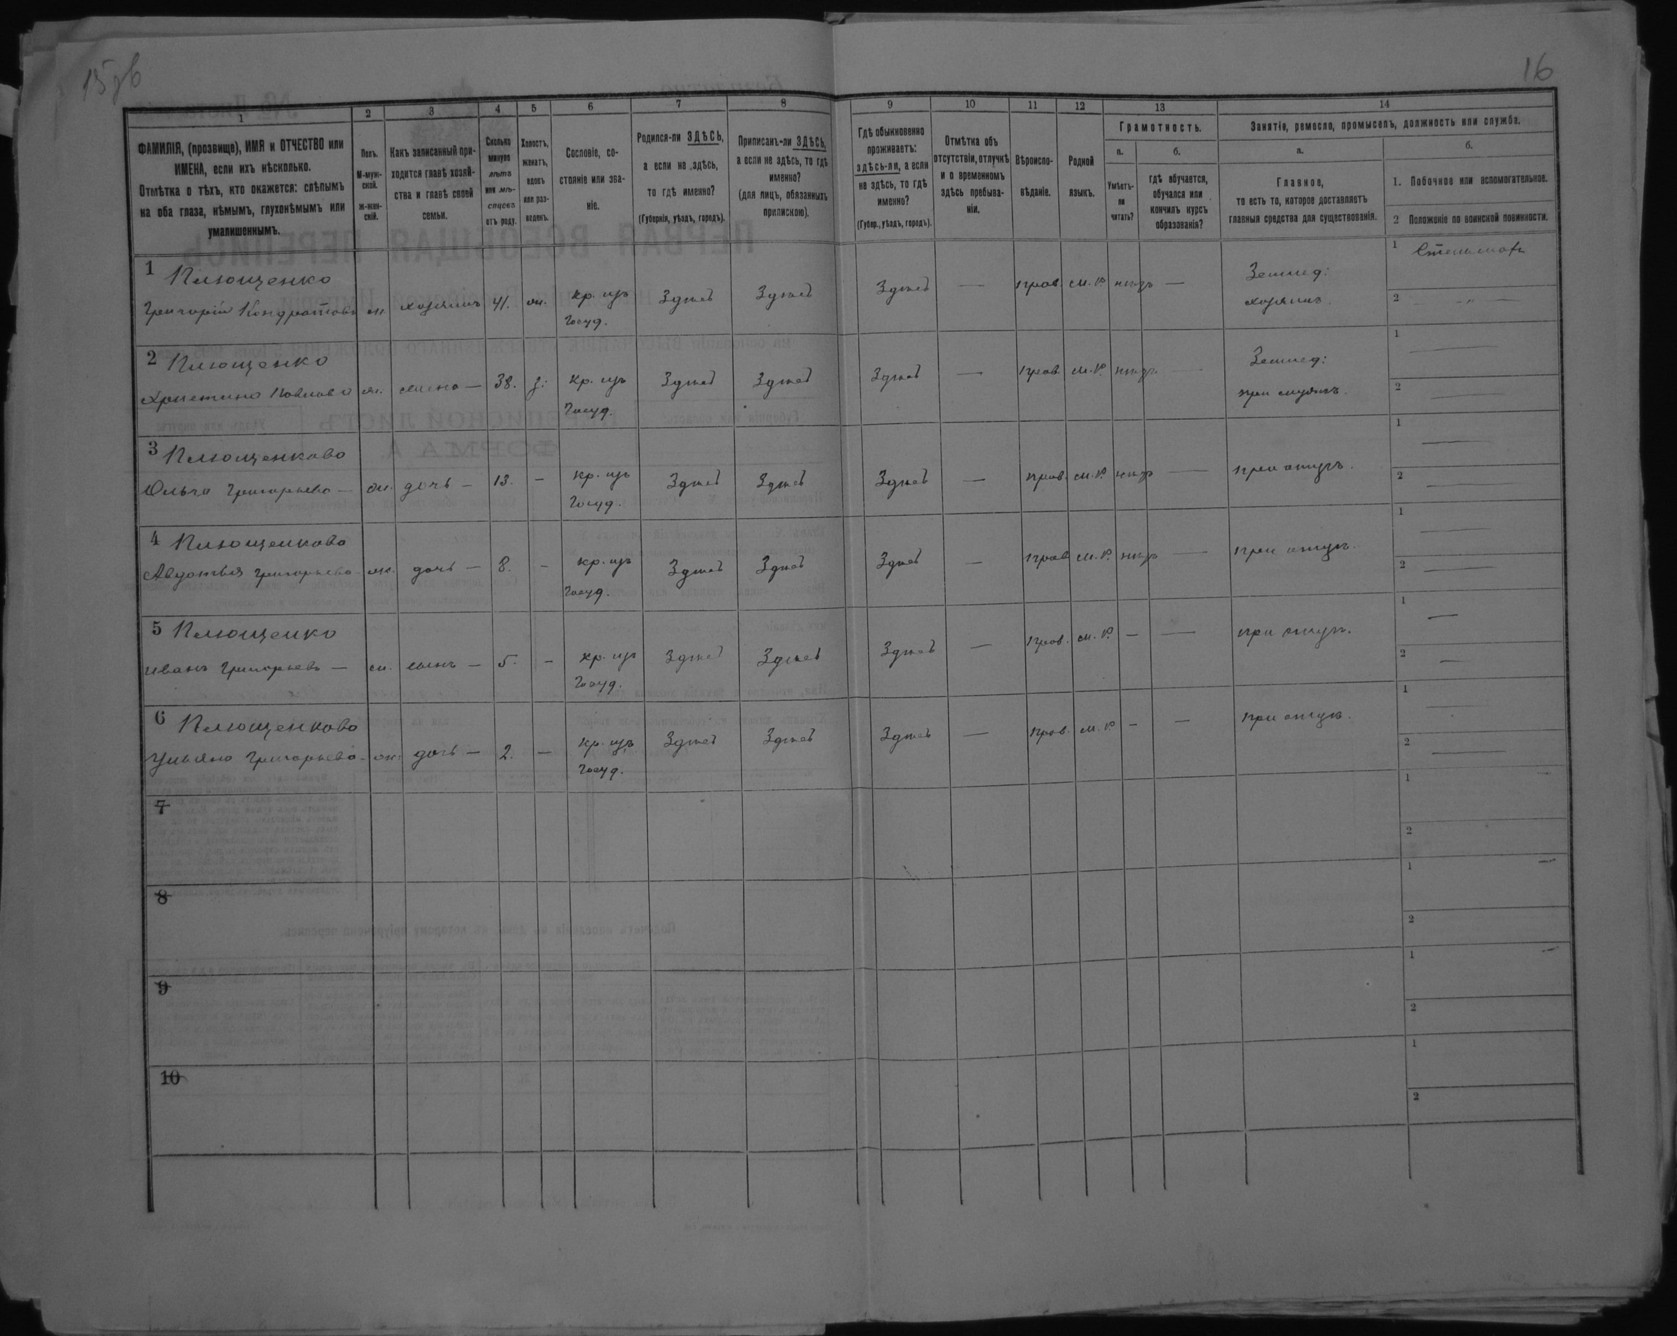 16
1 2 3 4 5 6 7 8 9 10 11 12 13 14
ФАМИЛІЯ, (прозвище), ИМЯ и ОТЧЕСТВО или
ИМЕНА, если ихъ нѣсколько.
Отмѣтка о тѣхъ, кто окажется: слѣпымъ
на оба глаза, нѣмымъ, глухонѣмымъ или
умалишеннымъ.
Полъ.
М-муж-
ской.
Ж-жен-
скій.
Какъ записанный при-
ходится главѣ хозяй-
ства и главѣ своей
семьи.
Сколько
минуло
лѣтъ
или мѣ-
сяцевъ
отъ роду.
Холостъ,
женатъ,
вдовъ
или раз-
веденъ.
Сословіе, со-
стояніе или зва-
ніе.
Родился-ли ЗДѢСЬ,
а если не здѣсь,
то гдѣ именно?
(Губернія, уѣздъ, городъ).
Приписанъ-ли ЗДѢСЬ,
а если не здѣсь, то гдѣ
именно?
(для лицъ, обязанныхъ
припискою).
Гдѣ обыкновенно
проживаетъ:
здѣсь-ли, а если
не здѣсь, то гдѣ
именно?
(Губер., уѣздъ, городъ).
Отмѣтка объ
отсутствіи, отлучкѣ
и о временномъ
здѣсь пребыва-
ніи.
Вѣроиспо-
вѣданіе.
Родной
языкъ.
Грамотность.
а.
Умѣетъ-
ли
читать?
б.
гдѣ обучается,
обучался или
кончилъ курсъ
образованія?
Занятіе, ремесло, промыселъ, должность или служба.
а.
Главное,
то есть то, которое доставляетъ
главныя средства для существованія.
б.
1. Побочное или вспомогательное.
2 Положеніе по воинской повинности.
1 Плющенко
Григорій Кондратовъ м. хозяинъ 41. ж. кр. изъ Здѣсь Здѣсь Здѣсь — прав. м. р. — Землед: 1
госуд. хозяинъ. 2
2 Плющенко
Христина Павлова ж. жена — 38. з. кр. изъ Здѣсь Здѣсь Здѣсь — прав. м. р. — Землед: 1 —
госуд. при мужѣ. 2 —
3 Плющенкова
Ольга Григорьева — ж. дочь — 13. — кр. изъ Здѣсь Здѣсь Здѣсь — прав. м. р. — при отцѣ. 1 —
госуд. 2 —
4 Плющенкова
Авдотья Григорьева ж. дочь — 8. — кр. изъ Здѣсь Здѣсь Здѣсь — прав. м. р. — при отцѣ. 1 —
госуд. 2 —
5 Плющенко
Иванъ Григорьевъ — м. сынъ — 5. — кр. изъ Здѣсь Здѣсь Здѣсь — прав. м. р. — — при отцѣ. 1 —
госуд. 2 —
6 Плющенкова
Ульяна Григорьева ж. дочь — 2. — кр. изъ Здѣсь Здѣсь Здѣсь — прав. м. р. — — при отцѣ. 1 —
госуд. 2 —
7 1
2
8 1
2
9 1
2
10 1
2